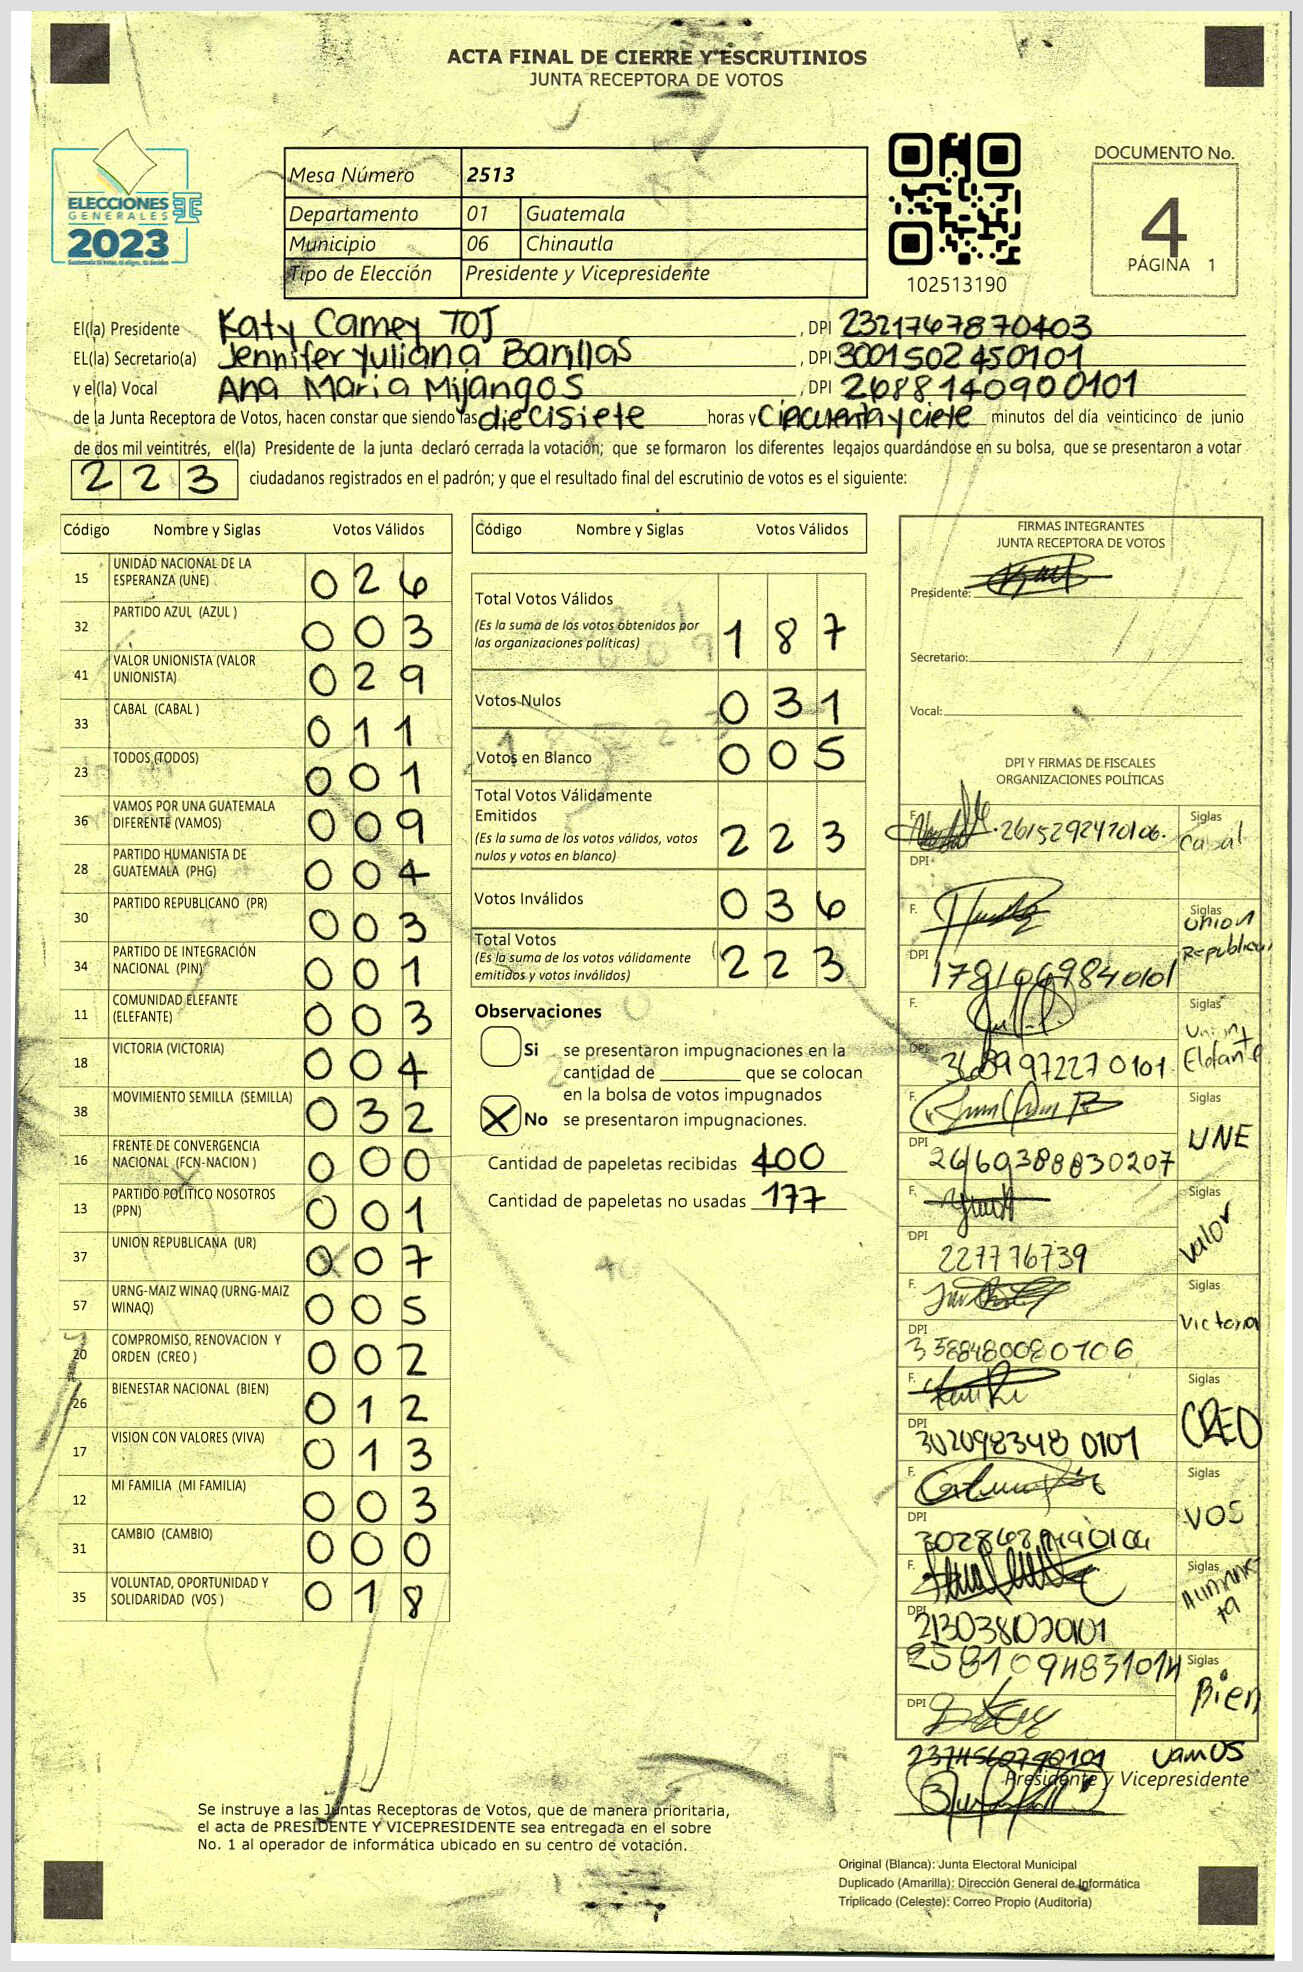 ACTA FINAL DE CIERRE Y ESCRUTINIOS
JUNTA RECEPTORA DE VOTOS
ELECCIONES
GENERALES
2023
Mesa Número 2513
Departamento 01 Guatemala
Municipio 06 Chinautla
Tipo de Elección Presidente y Vicepresidente
102513190
DOCUMENTO No.
4
PÁGINA 1
El(la) Presidente Katy Camey TOJ, DPI 2321767870403
EL(la) Secretario(a) Jennifer Yuliana Barillas, DPI 3001502450101
y el(la) Vocal Ana Maria Mijangos, DPI 2688140900101
de la Junta Receptora de Votos, hacen constar que siendo las diecisiete horas y cincuenta y ciete minutos del día veinticinco de junio
de dos mil veintitrés, el(la) Presidente de la junta declaró cerrada la votación; que se formaron los diferentes legajos guardándose en su bolsa, que se presentaron a votar
223 ciudadanos registrados en el padrón; y que el resultado final del escrutinio de votos es el siguiente:
Código Nombre y Siglas Votos Válidos
15 UNIDAD NACIONAL DE LA ESPERANZA (UNE) 026
32 PARTIDO AZUL (AZUL ) 003
41 VALOR UNIONISTA (VALOR UNIONISTA) 029
33 CABAL (CABAL ) 011
23 TODOS (TODOS) 001
36 VAMOS POR UNA GUATEMALA DIFERENTE (VAMOS) 009
28 PARTIDO HUMANISTA DE GUATEMALA (PHG) 004
30 PARTIDO REPUBLICANO (PR) 003
34 PARTIDO DE INTEGRACIÓN NACIONAL (PIN) 001
11 COMUNIDAD ELEFANTE (ELEFANTE) 003
18 VICTORIA (VICTORIA) 004
38 MOVIMIENTO SEMILLA (SEMILLA) 032
16 FRENTE DE CONVERGENCIA NACIONAL (FCN-NACION ) 000
13 PARTIDO POLÍTICO NOSOTROS (PPN) 001
37 UNION REPUBLICANA (UR) 007
57 URNG-MAIZ WINAQ (URNG-MAIZ WINAQ) 005
20 COMPROMISO, RENOVACION Y ORDEN (CREO ) 002
26 BIENESTAR NACIONAL (BIEN) 012
17 VISION CON VALORES (VIVA) 013
12 MI FAMILIA (MI FAMILIA) 003
31 CAMBIO (CAMBIO) 000
35 VOLUNTAD, OPORTUNIDAD Y SOLIDARIDAD (VOS ) 018
Código Nombre y Siglas Votos Válidos
Total Votos Válidos 187
(Es la suma de los votos obtenidos por
las organizaciones políticas)
Votos Nulos 031
Votos en Blanco 005
Total Votos Válidamente
Emitidos 223
(Es la suma de los votos válidos, votos
nulos y votos en blanco)
Votos Inválidos 036
Total Votos 223
(Es la suma de los votos válidamente
emitidos y votos inválidos)
Observaciones
Si se presentaron impugnaciones en la
cantidad de ________ que se colocan
en la bolsa de votos impugnados
X No se presentaron impugnaciones.
Cantidad de papeletas recibidas 400
Cantidad de papeletas no usadas 177
FIRMAS INTEGRANTES
JUNTA RECEPTORA DE VOTOS
Presidente:
Secretario:
Vocal:
DPI Y FIRMAS DE FISCALES
ORGANIZACIONES POLÍTICAS
F. 2615292420106. Siglas Cabal
DPI
F. Siglas Union
DPI Republica
F. Siglas
DPI 3689972270101 Elefante
F. Siglas
DPI UNE
F. Siglas
DPI 227776739 Valor
F. Siglas
DPI Victoria
F. Siglas
DPI 3020983480101 CREO
F. Siglas
DPI VOS
F. Siglas
DPI
2581094831014 Siglas
DPI Bien
vamos
Presidente y Vicepresidente
Se instruye a las Juntas Receptoras de Votos, que de manera prioritaria,
el acta de PRESIDENTE Y VICEPRESIDENTE sea entregada en el sobre
No. 1 al operador de informática ubicado en su centro de votación.
Original (Blanca): Junta Electoral Municipal
Duplicado (Amarilla): Dirección General de Informática
Triplicado (Celeste): Correo Propio (Auditoría)